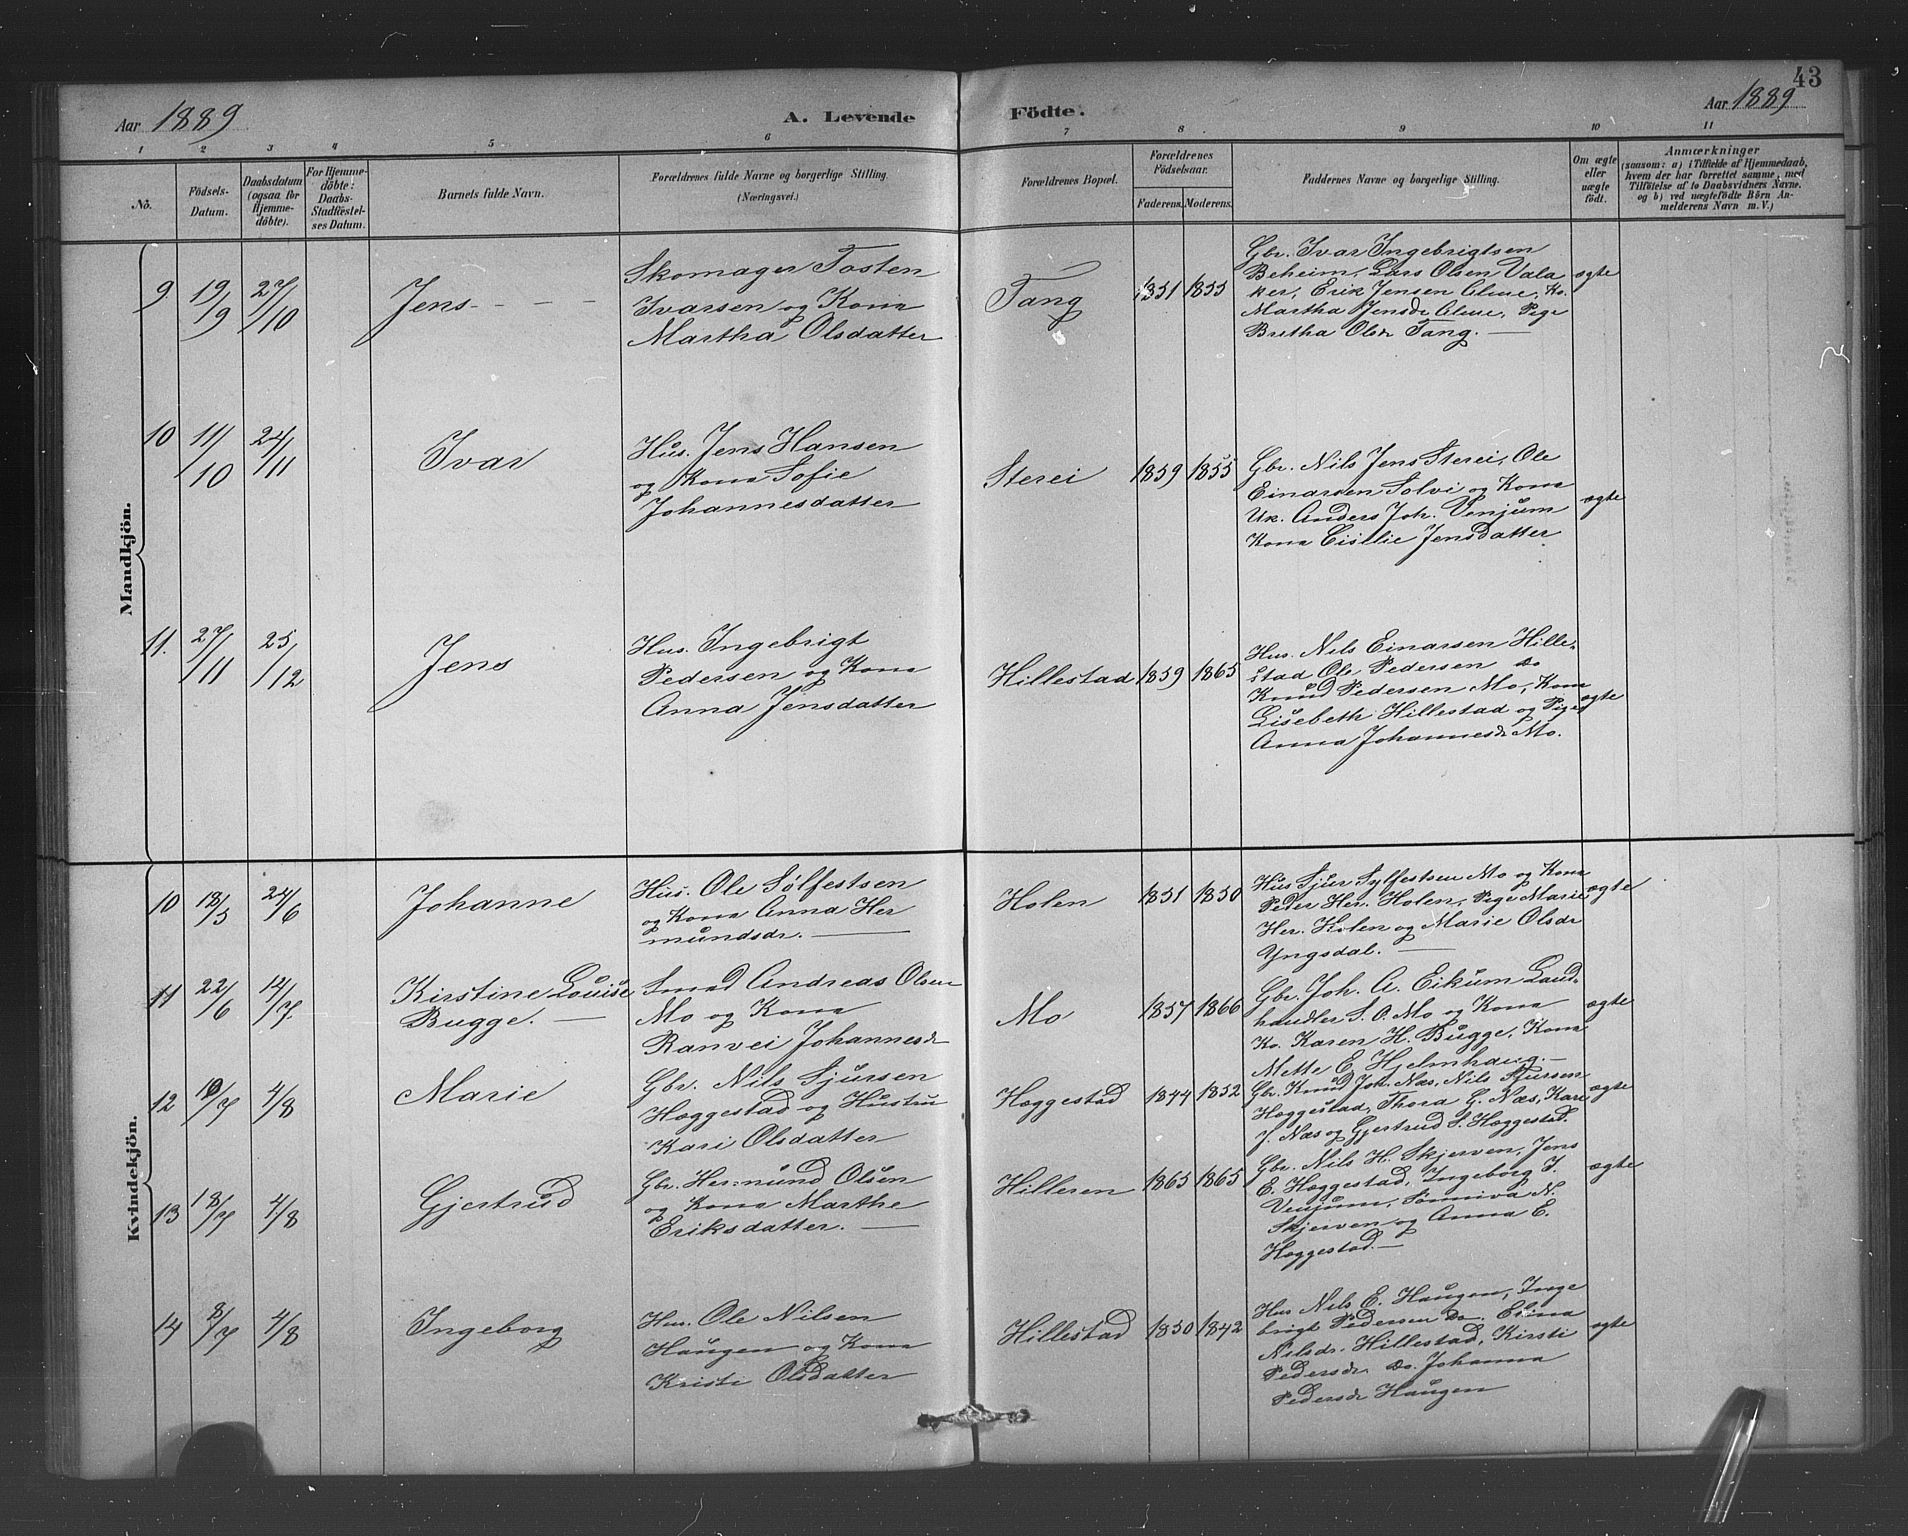 43
Aar 1889 A. Levende Födte. Aar 1889
1 2 3 4 5 6 7 8 9 10 11
No.
Födsels-Datum.
Daabsdatum (ogsaa for Hjemme-döbte).
For Hjemme-döbte: Daabs-Stadfæstel-ses Datum.
Barnets fulde Navn.
Forældrenes fulde Navne og borgerlige Stilling.
(Næringsvei.)
Forældrenes Bopæl.
Forældrenes Födselsaar.
Faderens. Moderens.
Faddernes Navne og borgerlige Stilling.
Om ægte eller uægte födt.
Anmærkninger
(saasom: a) i Tilfælde af Hjemmedaab,
hvem der har forrettet samme, med
Tilföielse af to Daabsvidners Navne.
og b) ved uægtefödte Börn An-
melderens Navn m. V.)
Mandkjön.
9 19/9 27/10 Jens - - - -
Skomager Tosten
Ivarsen og Kona
Martha Olsdatter
Tang 1851 1855
Gbr. Ivar Ingebrigtsen
Beheim, Lars Olsen Vala
ker, Erik Jensen, Ko.
Martha Jensdr, Pige
Bretha Olsdr Tang. —
ægte
10 11/10 24/11 Ivar
Hus. Jens Hansen
og Kona Sofie
Johannesdatter
Sterei 1859 1855
Gbr. Nils Jens Sterei, Ole
Einarsen Solvi og Kona
Uk. Anders Joh. Venjum
Kona Cisilie Jensdatter
ægte
11. 27/11 25/12 Jens
Hus. Ingebrigt
Pedersen og Kona
Anna Jensdatter
Hillestad 1859 1865
Hus. Nils Einarsen Hille-
stad Ole Pedersen do
Knud Pedersen Mo, Kona
Lisebeth Hillestad og Pige
Anna Johannesdr Mo.
ægte
Kvindekjön.
10 18/5 24/6 Johanne
Hus. Ole Sølfestsen
og Kona Anna Her
mundsdr. —
Holen 1851 1850
Hus Sjur Sylfestsen Mo og Kona
Peder Her. Holen, Pige Marie
Her. Holen og Marie Olsdr
Yngsdal. —
ægte
11 22/6 14/7 Kirstine Louise
Bugge. —
Smed Andreas Olsen
Mo og Kona
Ranvei Johannesdr
Mo 1857 1866
Gbr. Joh. A. Eikum Land-
handler S. O. Mo og Kona
Ko. Karen H. Bugge, Kona
Mette E. Hjelmhaug. —
ægte
12 10/7 4/8 Marie
Gbr. Nils Sjursen
Hæggestad og Hustru
Kari Olsdatter
Hæggestad 1844 1852
Gbr. Knud Joh. Næs, Nils Sjursen
Hæggestad, Thora G. Næs, Kari
J. Næs og Gjertrud S. Hæggestad.
ægte
13 18/7 4/8 Gjertrud
Gbr. Hermund Olsen
og Kona Marthe
Eriksdatter. —
Hilleren 1865 1865
Gbr. Nils H. Skjerven, Jens
E. Hæggestad, Ingeborg J.
Venjum, Sønniva N.
Skjerven og Anna E.
Hæggestad. —
ægte
14 8/7 4/8 Ingeborg
Hus. Ole Nilsen
Haugen og Kona
Kristi Olsdatter
Hillestad 1850 1842
Hus Nils E. Haugen, Inge
brigt Pedersen do. Elina
Nilsdr. Hillestad, Kirsti
Pedersdr do. Johanna
Pedersdr Haugen
ægte